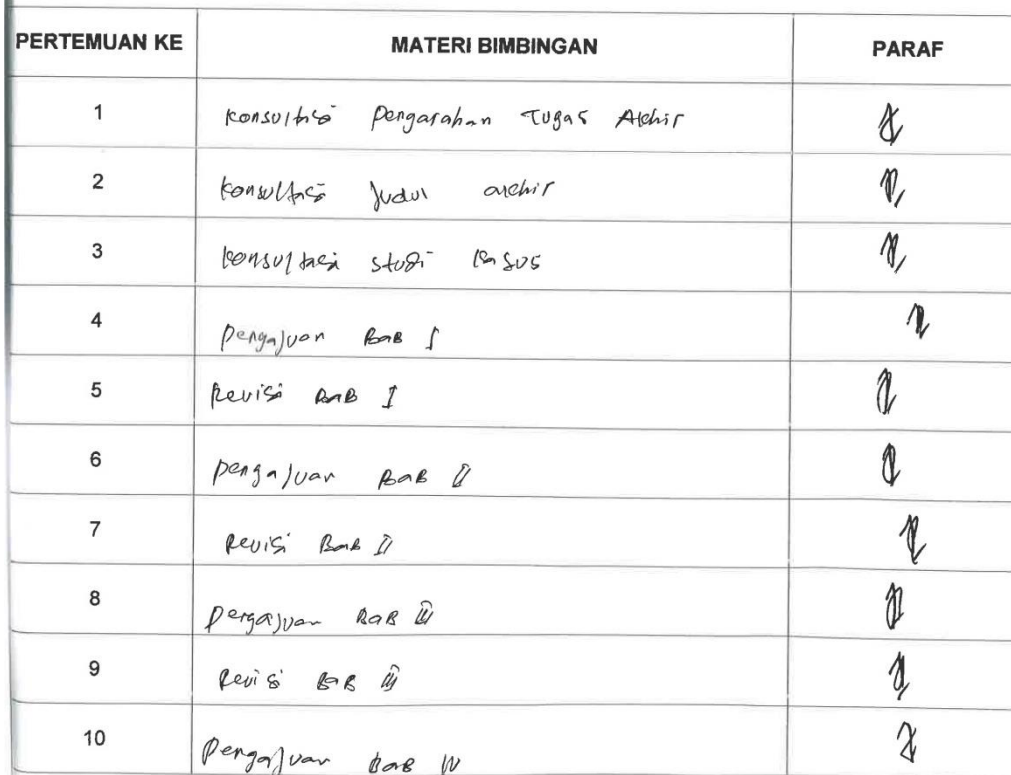 PERTEMUAN KE MATERI BIMBINGAN PARAF
1 Konsultasi Pengarahan Tugas Akhir
2 Konsultasi Judul akhir
3 Konsultasi studi kasus
4 Pengajuan BAB I
5 Revisi BAB I
6 Pengajuan BAB II
7 Revisi BAB II
8 Pengajuan BAB III
9 Revisi BAB III
10 Pengajuan BAB IV